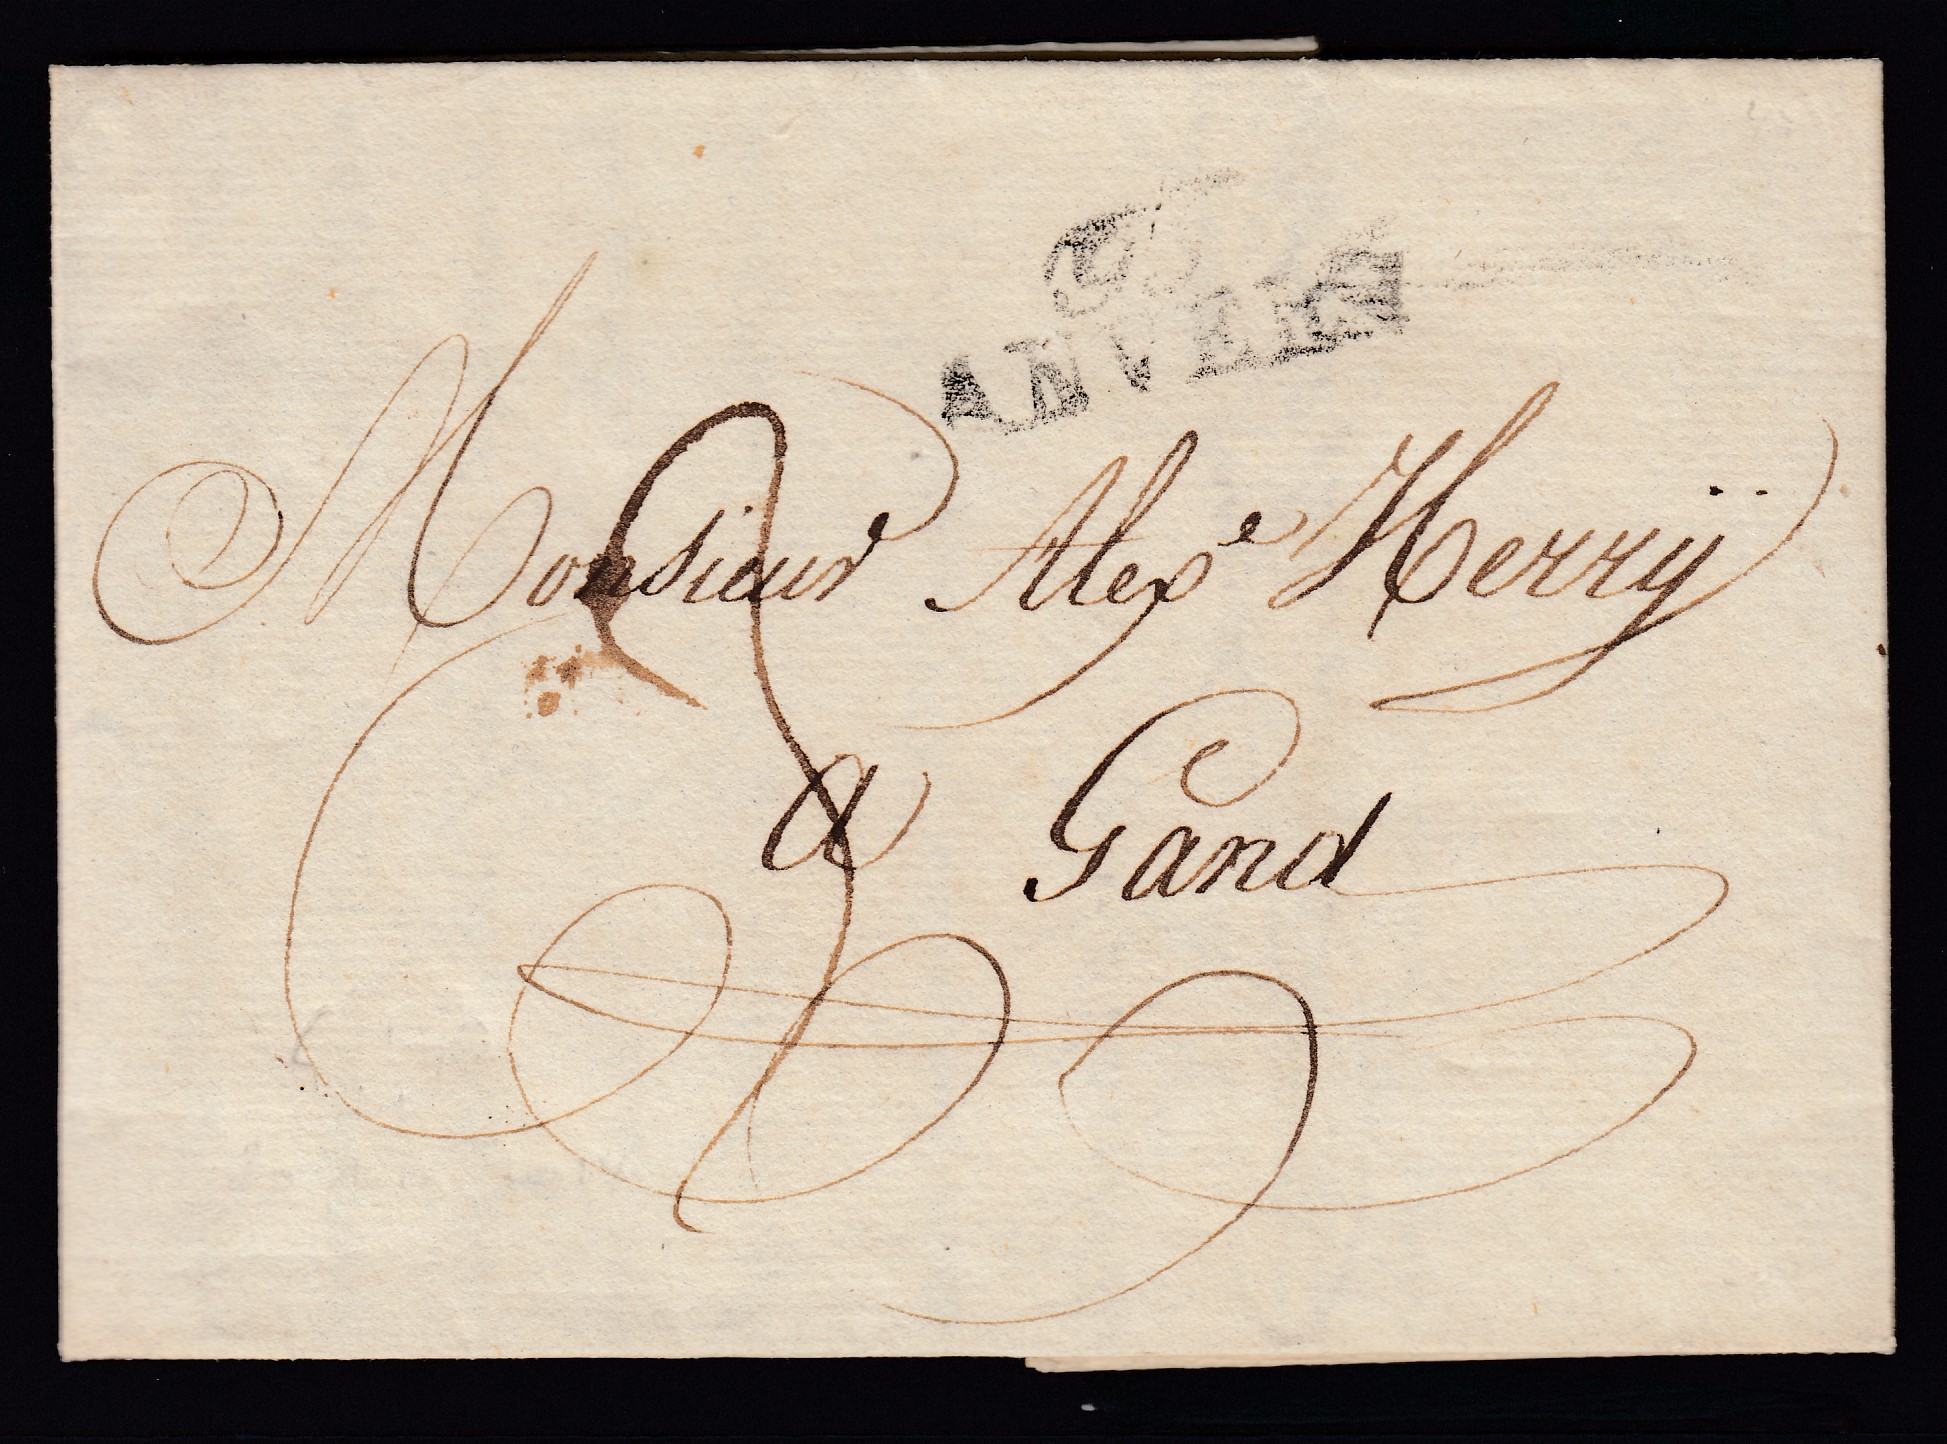 93
ANVERS
Monsieur Alexe Herrÿ
a Gand